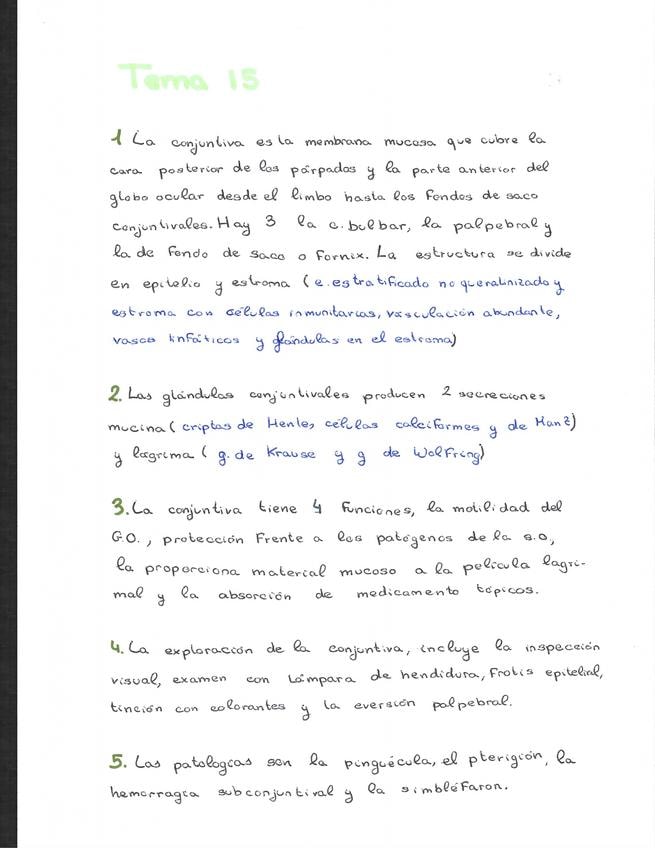 Tema 15
1 La conjuntiva es la membrana mucosa que cubre la
cara posterior de los párpados y la parte anterior del
globo ocular desde el limbo hasta los fondos de saco
conjuntivales. Hay 3 la c. bulbar, la palpebral y
la de fondo de saco o fornix. La estructura se divide
en epitelio y estroma (e. estratificado no queratinizado y
estroma con células inmunitarias, vasculación abundante,
vasos linfáticos y glándulas en el estroma)
2. Las glándulas conjuntivales producen 2 secreciones
mucina (criptas de Henle, células calciformes y de Manz)
y lágrima (g. de Krause y g de Wolfring)
3. La conjuntiva tiene 4 funciones, la motilidad del
G.O., protección frente a los patógenos de la s.o,
la proporciona material mucoso a la película lagri-
mal y la absorción de medicamento tópicos.
4. La exploración de la conjuntiva, incluye la inspección
visual, examen con lámpara de hendidura, frotis epitelial,
tinción con colorantes y la eversión palpebral.
5. Las patologías son la pinguécula, el pterigión, la
hemorragia subconjuntival y la simbléfaron.